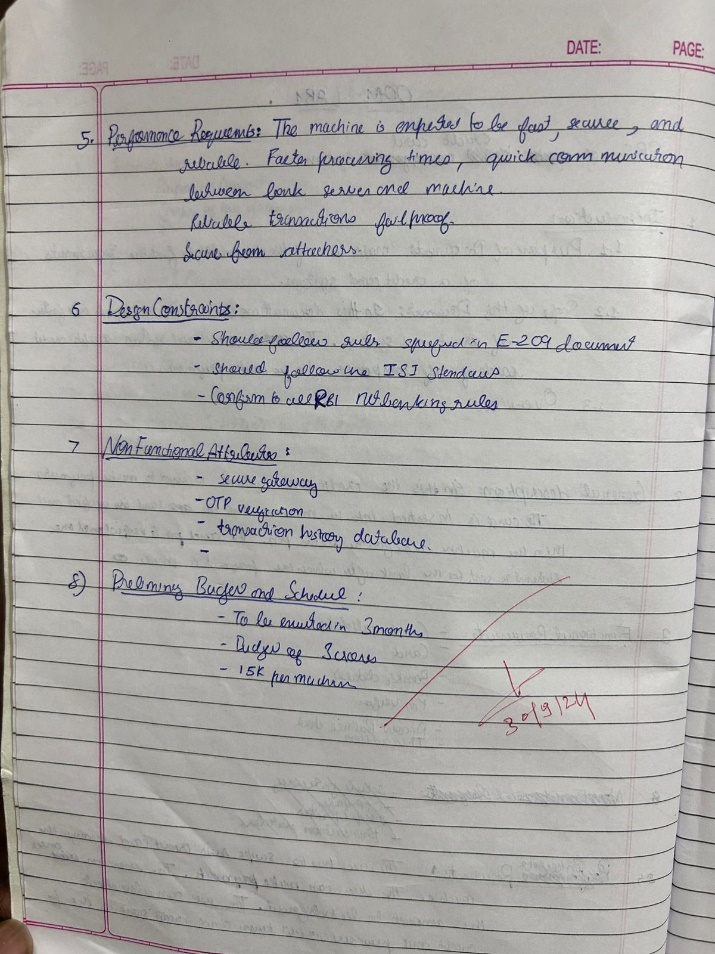 DATE: PAGE:
5. Performance Requments: The machine is expected to be fast, secure, and
reliable. Faster processing times, quick communication
between bank server and machine.
Reliable transactions failproof.
Secure from attackers.
6 Design Constraints:
- Should follow rules in E-209 document
- should follow the ISI standards
- Confirm to all RBI netbanking rules
7 Non Functional Attributes:
- secure gateway
- OTP verification
- transaction history database.
-
8) Prelimnary Budget and Schedule:
- To be in 3 months
- Budget of 3 crores
- 15K per machine
30/9/24